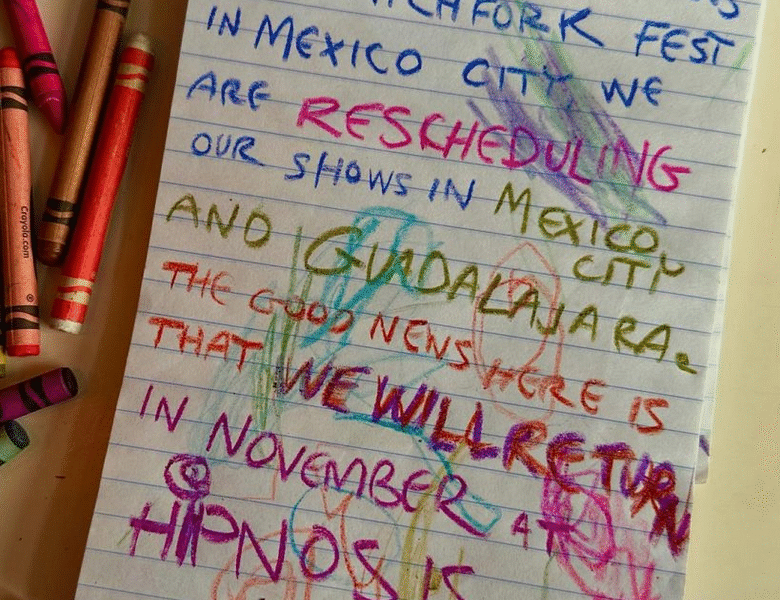 ITCHFORK FEST
IN MEXICO CITY, WE
ARE RESCHEDULING
OUR SHOWS IN MEXICO
CITY
AND GUADALAJARA.
THE GOOD NEWS HERE IS
THAT WE WILL RETURN
IN NOVEMBER AT
HIPNOSIS
Crayola.com